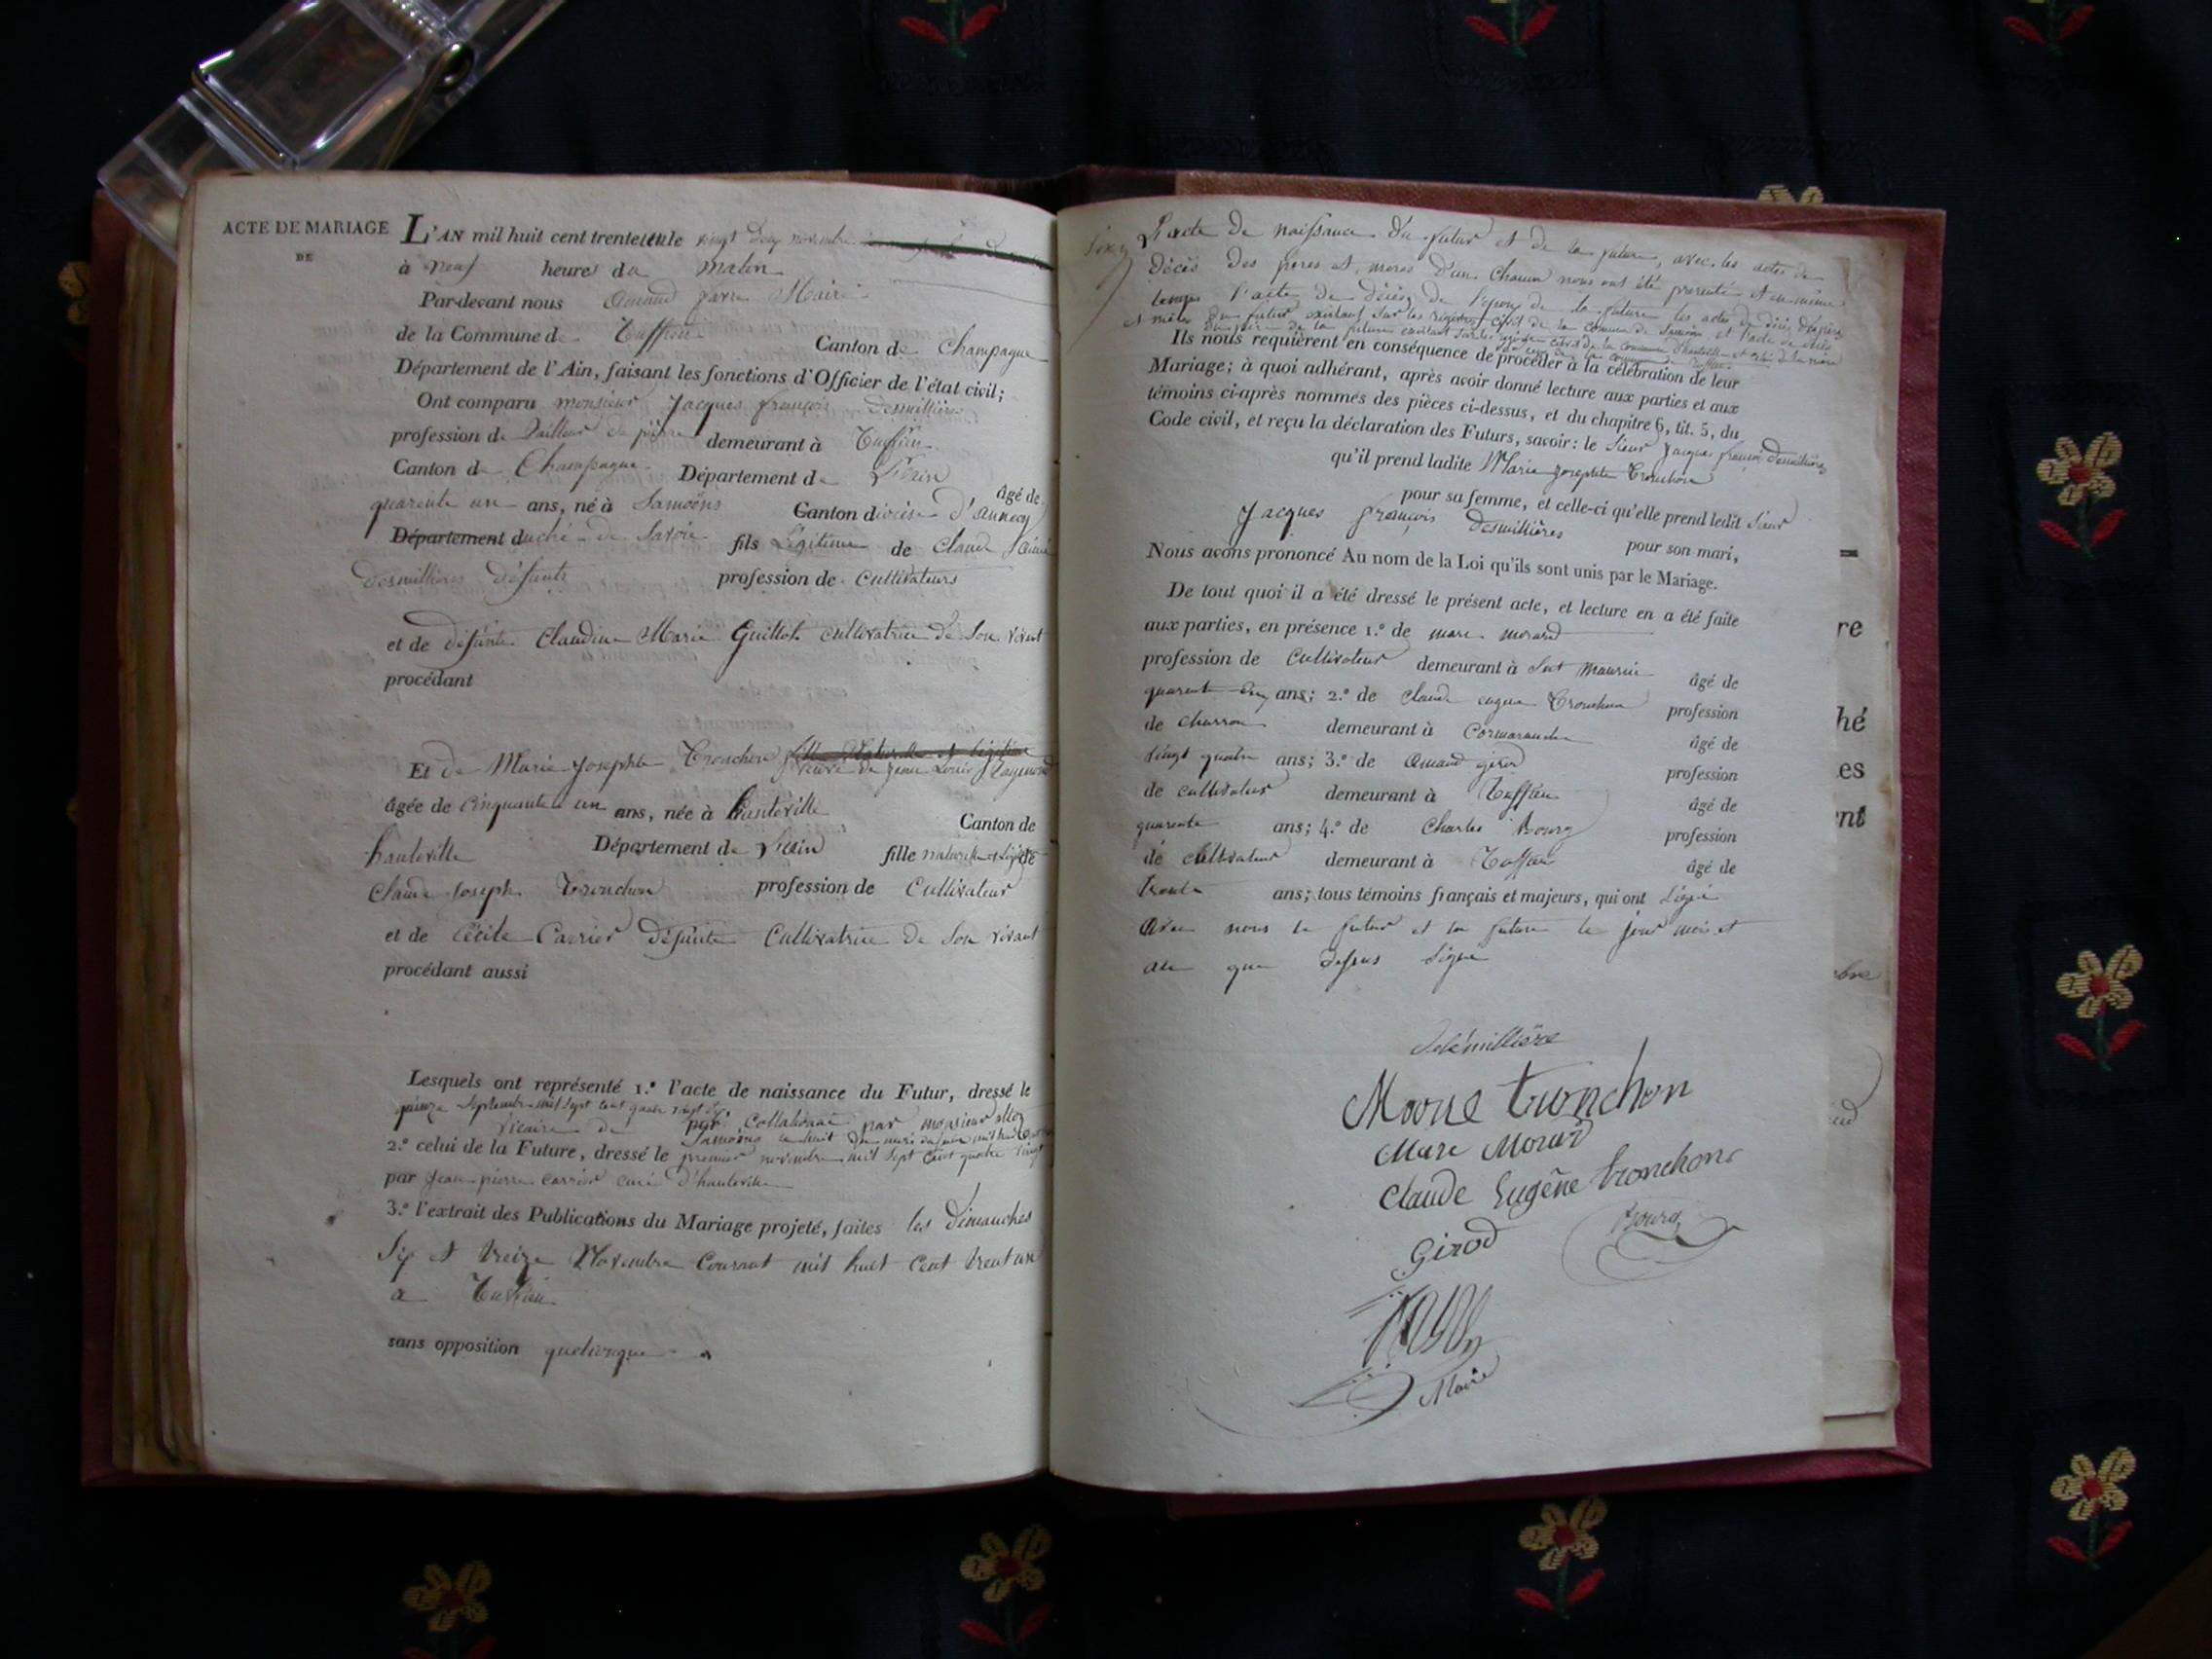 ACTE DE MARIAGE
DE
L'AN mil huit cent trente et un le vingt deux novembre
à neuf heures du matin
Par-devant nous Amand favre Maire
de la Commune de Ruffieu Canton de Champagne
Département de l'Ain, faisant les fonctions d'Officier de l'état civil;
Ont comparu monsieur Jacques françois Desmillières
profession de Tailleur de pierre demeurant à Ruffieu
Canton de Champagne Département de L'ain âgé de
quarente un ans, né à Samoëns Canton diocèse d'annecy
Département duché de Savoie fils Légitime de Claude
Desmillières défunts profession de Cultivateurs
et de défunte Claudine Marie Guillot cultivatrice de Son vivant
procédant
Et de Marie Josephte Tronchon fille Naturelle et légitime
veuve de Jean Louis Raymond
âgée de Cinquante un ans, née à hauteville Canton de
hauteville Département de L'ain fille naturelle et légit de
Claude Joseph Tronchon profession de Cultivateur
et de Cécile Carrier Défunte Cultivatrice de Son vivant
procédant aussi
Lesquels ont représenté 1.º l'acte de naissance du Futur, dressé le
quinze Septembre mil sept cent quatre vingt dix
par Collationné par monsieur
vicaire de Samoëns le huit du mois de juin mil huit cent
2.º celui de la Future, dressé le premier novembre mil sept cent quatre vingt
par Jean pierre carrier curé d'hauteville
3.º l'extrait des Publications du Mariage projeté, faites les Dimanches
Six et treize Novembre Courant mil huit cent trent un
a Ruffieu
sans opposition quelconque
L'acte de naissance du futur et de la future, avec les actes de
Décès des pères et mères d'un Chacun nous ont été presenté et en même
temps l'acte de décès de l'epoux de la future les actes de décès des père
et mère du futur existant sur les registres civil de la commune de Samoëns et l'acte de décès
du père de la future existant sur les registres civil de la commune d'hauteville et celui de la mère
sur ceux de la commune de Ruffieu
Ils nous requièrent en conséquence de procéder à la célébration de leur
Mariage; à quoi adhérant, après avoir donné lecture aux parties et aux
témoins ci-après nommés des pièces ci-dessus, et du chapitre 6, tit. 5, du
Code civil, et reçu la déclaration des Futurs, savoir: le Sieur Jacques françois Desmillières
qu'il prend ladite Marie Josephte Tronchon
pour sa femme, et celle-ci qu'elle prend ledit Sieur
Jacques françois Desmillières pour son mari,
Nous avons prononcé Au nom de la Loi qu'ils sont unis par le Mariage.
De tout quoi il a été dressé le présent acte, et lecture en a été faite
aux parties, en présence 1.º de marc morard
profession de Cultivateur demeurant à Sut Maurice âgé de
quarent cinq ans; 2.º de Claude eugene Tronchon profession
de charron demeurant à Cormaranche âgé de
vingt quatre ans; 3.º de Amand girod profession
de cultivateur demeurant à Ruffieu âgé de
quarente ans; 4.º de Charles Bourg profession
de cultivateur demeurant à Ruffieu âgé de
trente ans; tous témoins français et majeurs, qui ont Signé
Avec nous le futur et la future le jour mois et
an que dessus Signé
Marie tronchon
Marc Morard
Claude Eugêne tronchon
Girod
Bourg
Maire
re
hé
es
ent